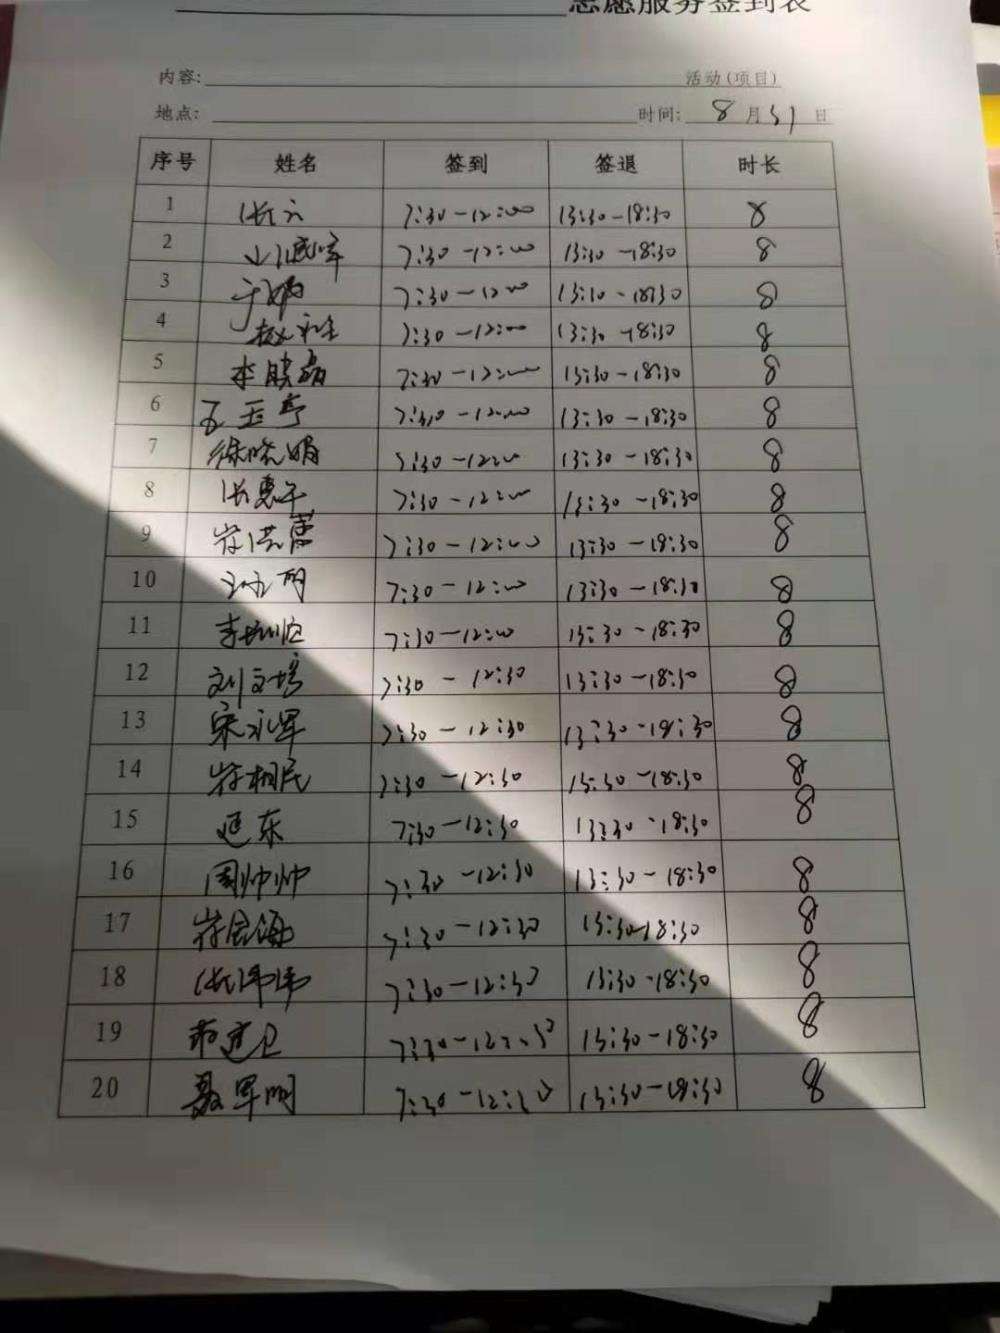 志愿服务签到表
内容: 活动(项目)
地点: 时间: 8月31日
序号 姓名 签到 签退 时长
1 7:30-12:00 13:30-18:30 8
2 7:30-12:00 13:30-18:30 8
3 于娟 7:30-12:00 13:30-18:30 8
4 7:30-12:00 13:30-18:30 8
5 李晓丽 7:30-12:00 13:30-18:30 8
6 王玉亭 7:30-12:00 13:30-18:30 8
7 徐晓娟 7:30-12:00 13:30-18:30 8
8 7:30-12:00 13:30-18:30 8
9 7:30-12:00 13:30-18:30 8
10 7:30-12:00 13:30-18:30 8
11 7:30-12:00 13:30-18:30 8
12 刘文培 7:30-12:30 13:30-18:30 8
13 宋永军 7:30-12:30 13:30-18:30 8
14 7:30-12:30 13:30-18:30 8
15 延东 7:30-12:30 13:30-18:30 8
16 周帅帅 7:30-12:30 13:30-18:30 8
17 7:30-12:30 13:30-18:30 8
18 张伟伟 7:30-12:30 13:30-18:30 8
19 7:30-12:30 13:30-18:30 8
20 聂军明 7:30-12:30 13:30-18:30 8